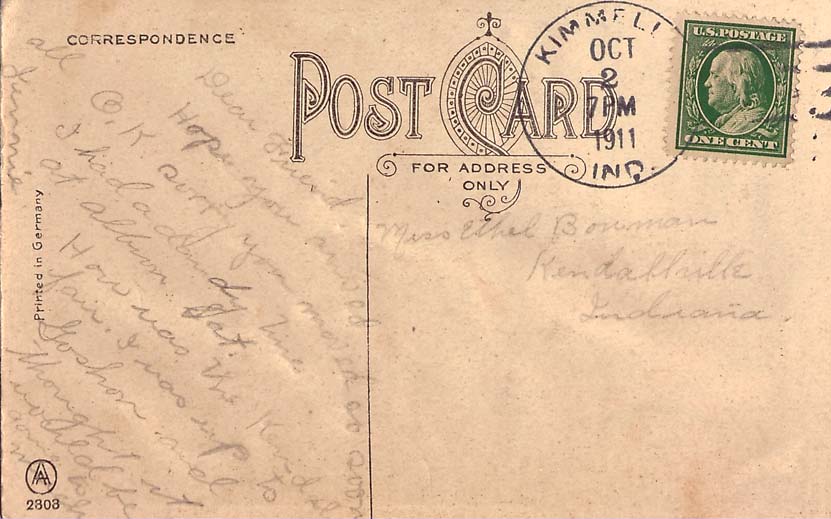 CORRESPONDENCE
POST CARD
FOR ADDRESS
ONLY
KIMMELL
OCT
2
7 PM
1911
IND.
U.S. POSTAGE
ONE CENT
Miss Ethel Bowman
Kendallville
Indiana.
Dear Friend
Hope you arived
O K sorry you moved so soon
I had a dandy time
at albion Sat.
How was the Kendal
fair. I was up to
Goshen and
thought it
would be
all
Printed in Germany
2303